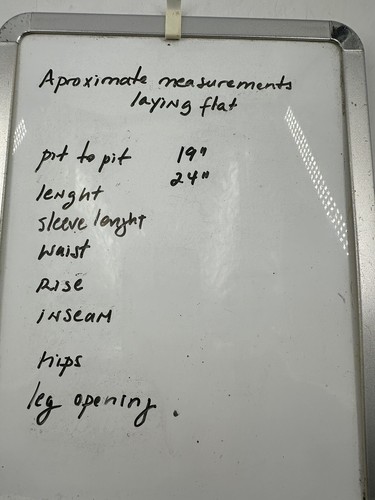 Aproximate measurements
laying flat
pit to pit 19"
lenght 24"
sleeve lenght
waist
Rise
inseam
hips
leg opening.